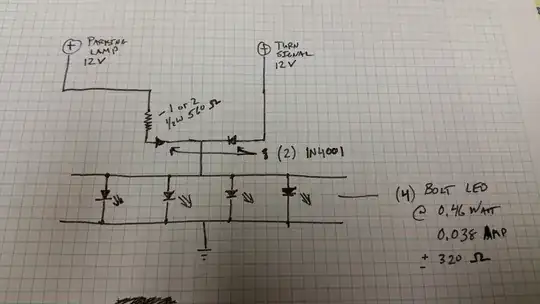 + PARKING
LAMP
12V
+ TURN
SIGNAL
12V
- 1 or 2
1/2W 560 Ω
(2) 1N4001
(4) BOLT LED
@ 0.46 WATT
0.038 AMP
± 320 Ω